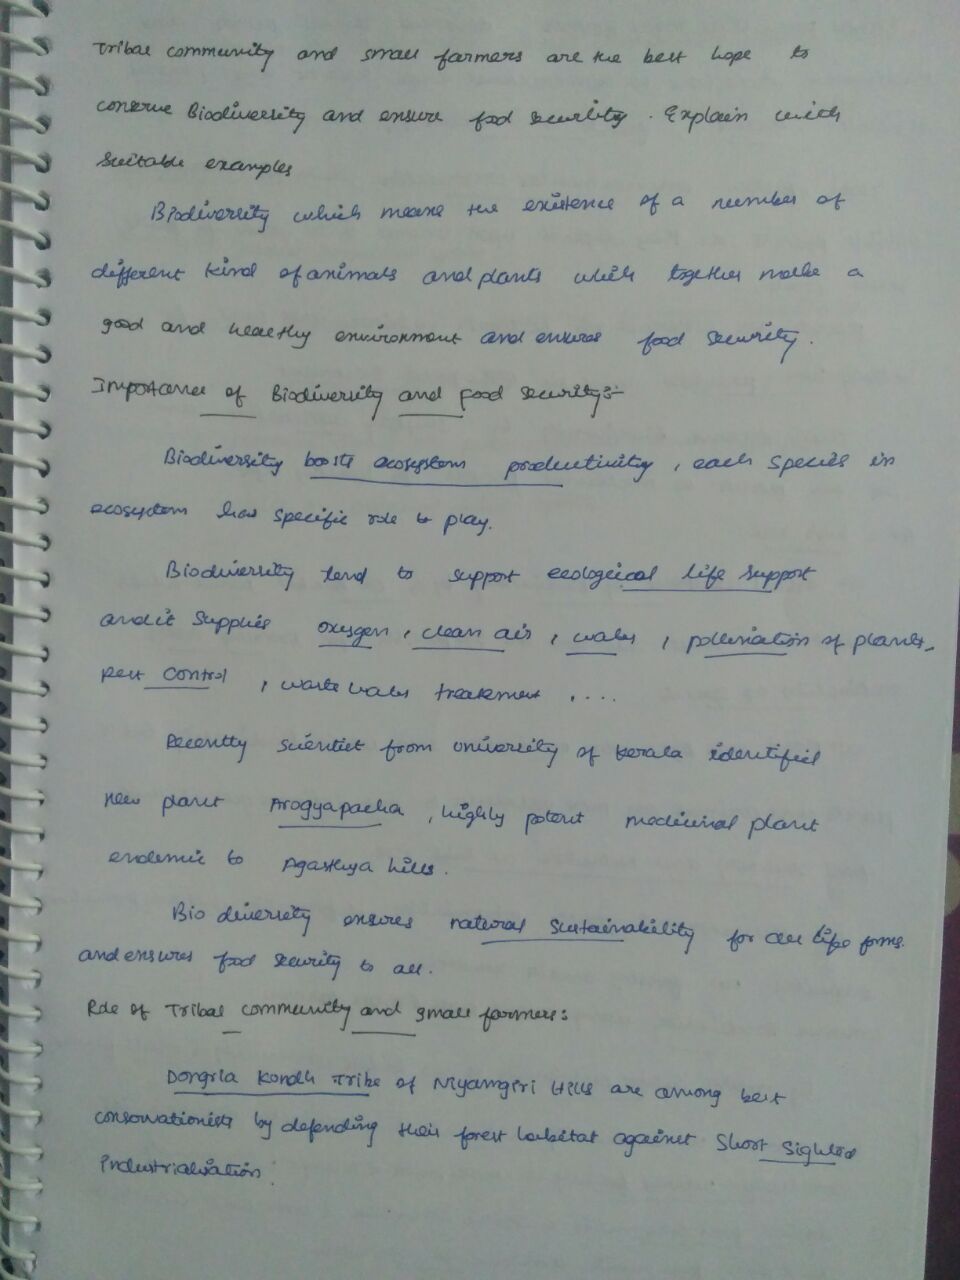 Tribal community and small farmers are the best hope to
conserve Biodiversity and ensure food security. Explain with
suitable examples
Biodiversity which means the existence of a number of
different kind of animals and plants which together make a
good and healthy environment and ensures food security.
Importance of Biodiversity and food security:-
Biodiversity boosts ecosystem productivity, each species in
ecosystem has specific role to play.
Biodiversity tend to support ecological life support
and it supplies oxygen, clean air, water, pollination of plants,
pest control, waste water treatement ....
Recently scientist from University of Kerala identified
new plant Arogyapacha, highly potent medicinal plant
endemic to Agasthya hills.
Bio diversity ensures natural sustainability for all life forms.
and ensures food security to all.
Role of Tribal community and small farmers:
Dongria Kondh Tribe of Niyamgiri Hills are among best
conservationists by defending their forest habitat against short sighted
industrialisation.